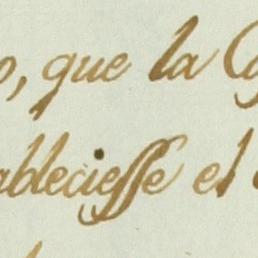 o, que la C
ableciesse el